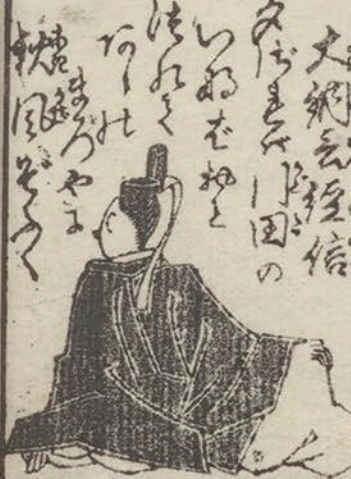 大納言經信
夕されは門田の
いなばおと
づれて
あしの
まろやに
秋風ぞふく